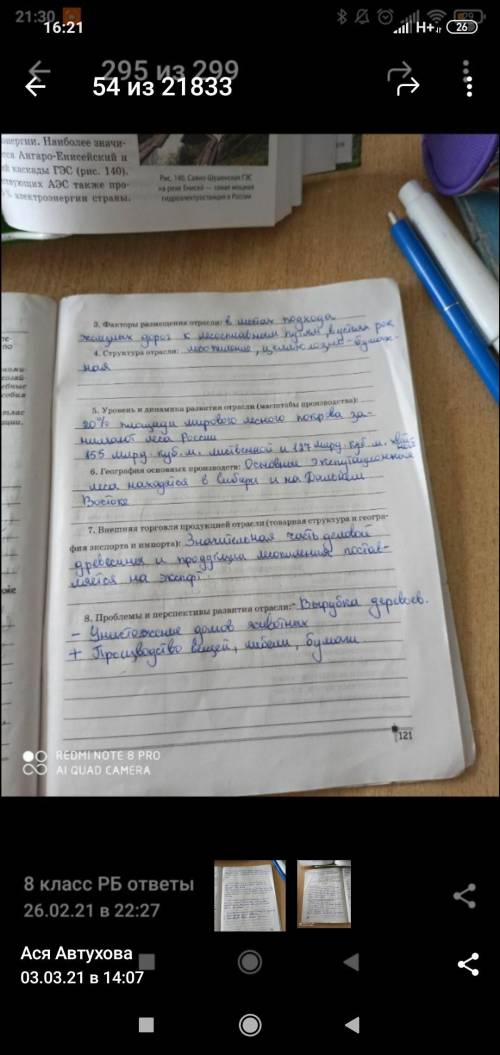 21:30
16:21
H+
26
295 из 299
54 из 21833
энергии. Наиболее значи-
Ангаро-Енисейский и
каскады ГЭС (рис. 140).
ствующих АЭС также про-
% электроэнергии страны.
Рис. 140. Саяно-Шушенская ГЭС
на реке Енисей — самая мощная
гидроэлектростанция в России
3. Факторы размещения отрасли: в местах подхода
железных дорог к лесосплавным путям, в устьях рек
4. Структура отрасли: лесопиление, целлюлозно-бумаж-
ная
5. Уровень и динамика развития отрасли (масштабы производства):
20% площади мирового лесного покрова за-
нимают леса России
155 млрд. куб. м. лиственной и 127 млрд. куб. м. хвой
6. География основных производств: Основные эксплутационная
леса находятся в сибири и на Дальнем
Востоке
7. Внешняя торговля продукцией отрасли (товарная структура и геогра-
фия экспорта и импорта): Значительная часть деловой
древесины и продукция лесопиления постав-
ляется на экспорт
8. Проблемы и перспективы развития отрасли: - Вырубка деревьев.
- Уничтожение домов животных
+ Производство вещей, мебели, бумаги
121
REDMI NOTE 8 PRO
AI QUAD CAMERA
8 класс РБ ответы
26.02.21 в 22:27
Ася Автухова
03.03.21 в 14:07